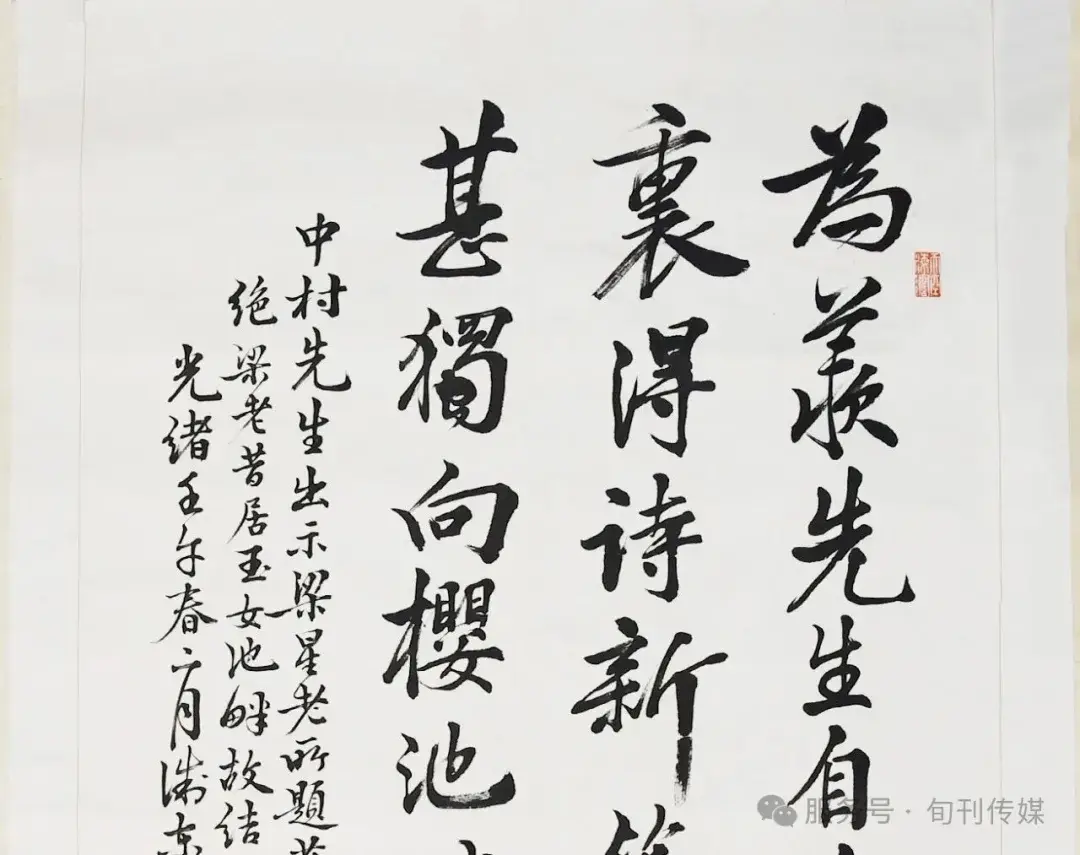 為羨先生自
裏得诗新
甚獨向櫻池
中村先生出示梁星老所題
絶梁老昔居玉女池畔故結
光绪壬午春二月
服务号 · 旬刊传媒